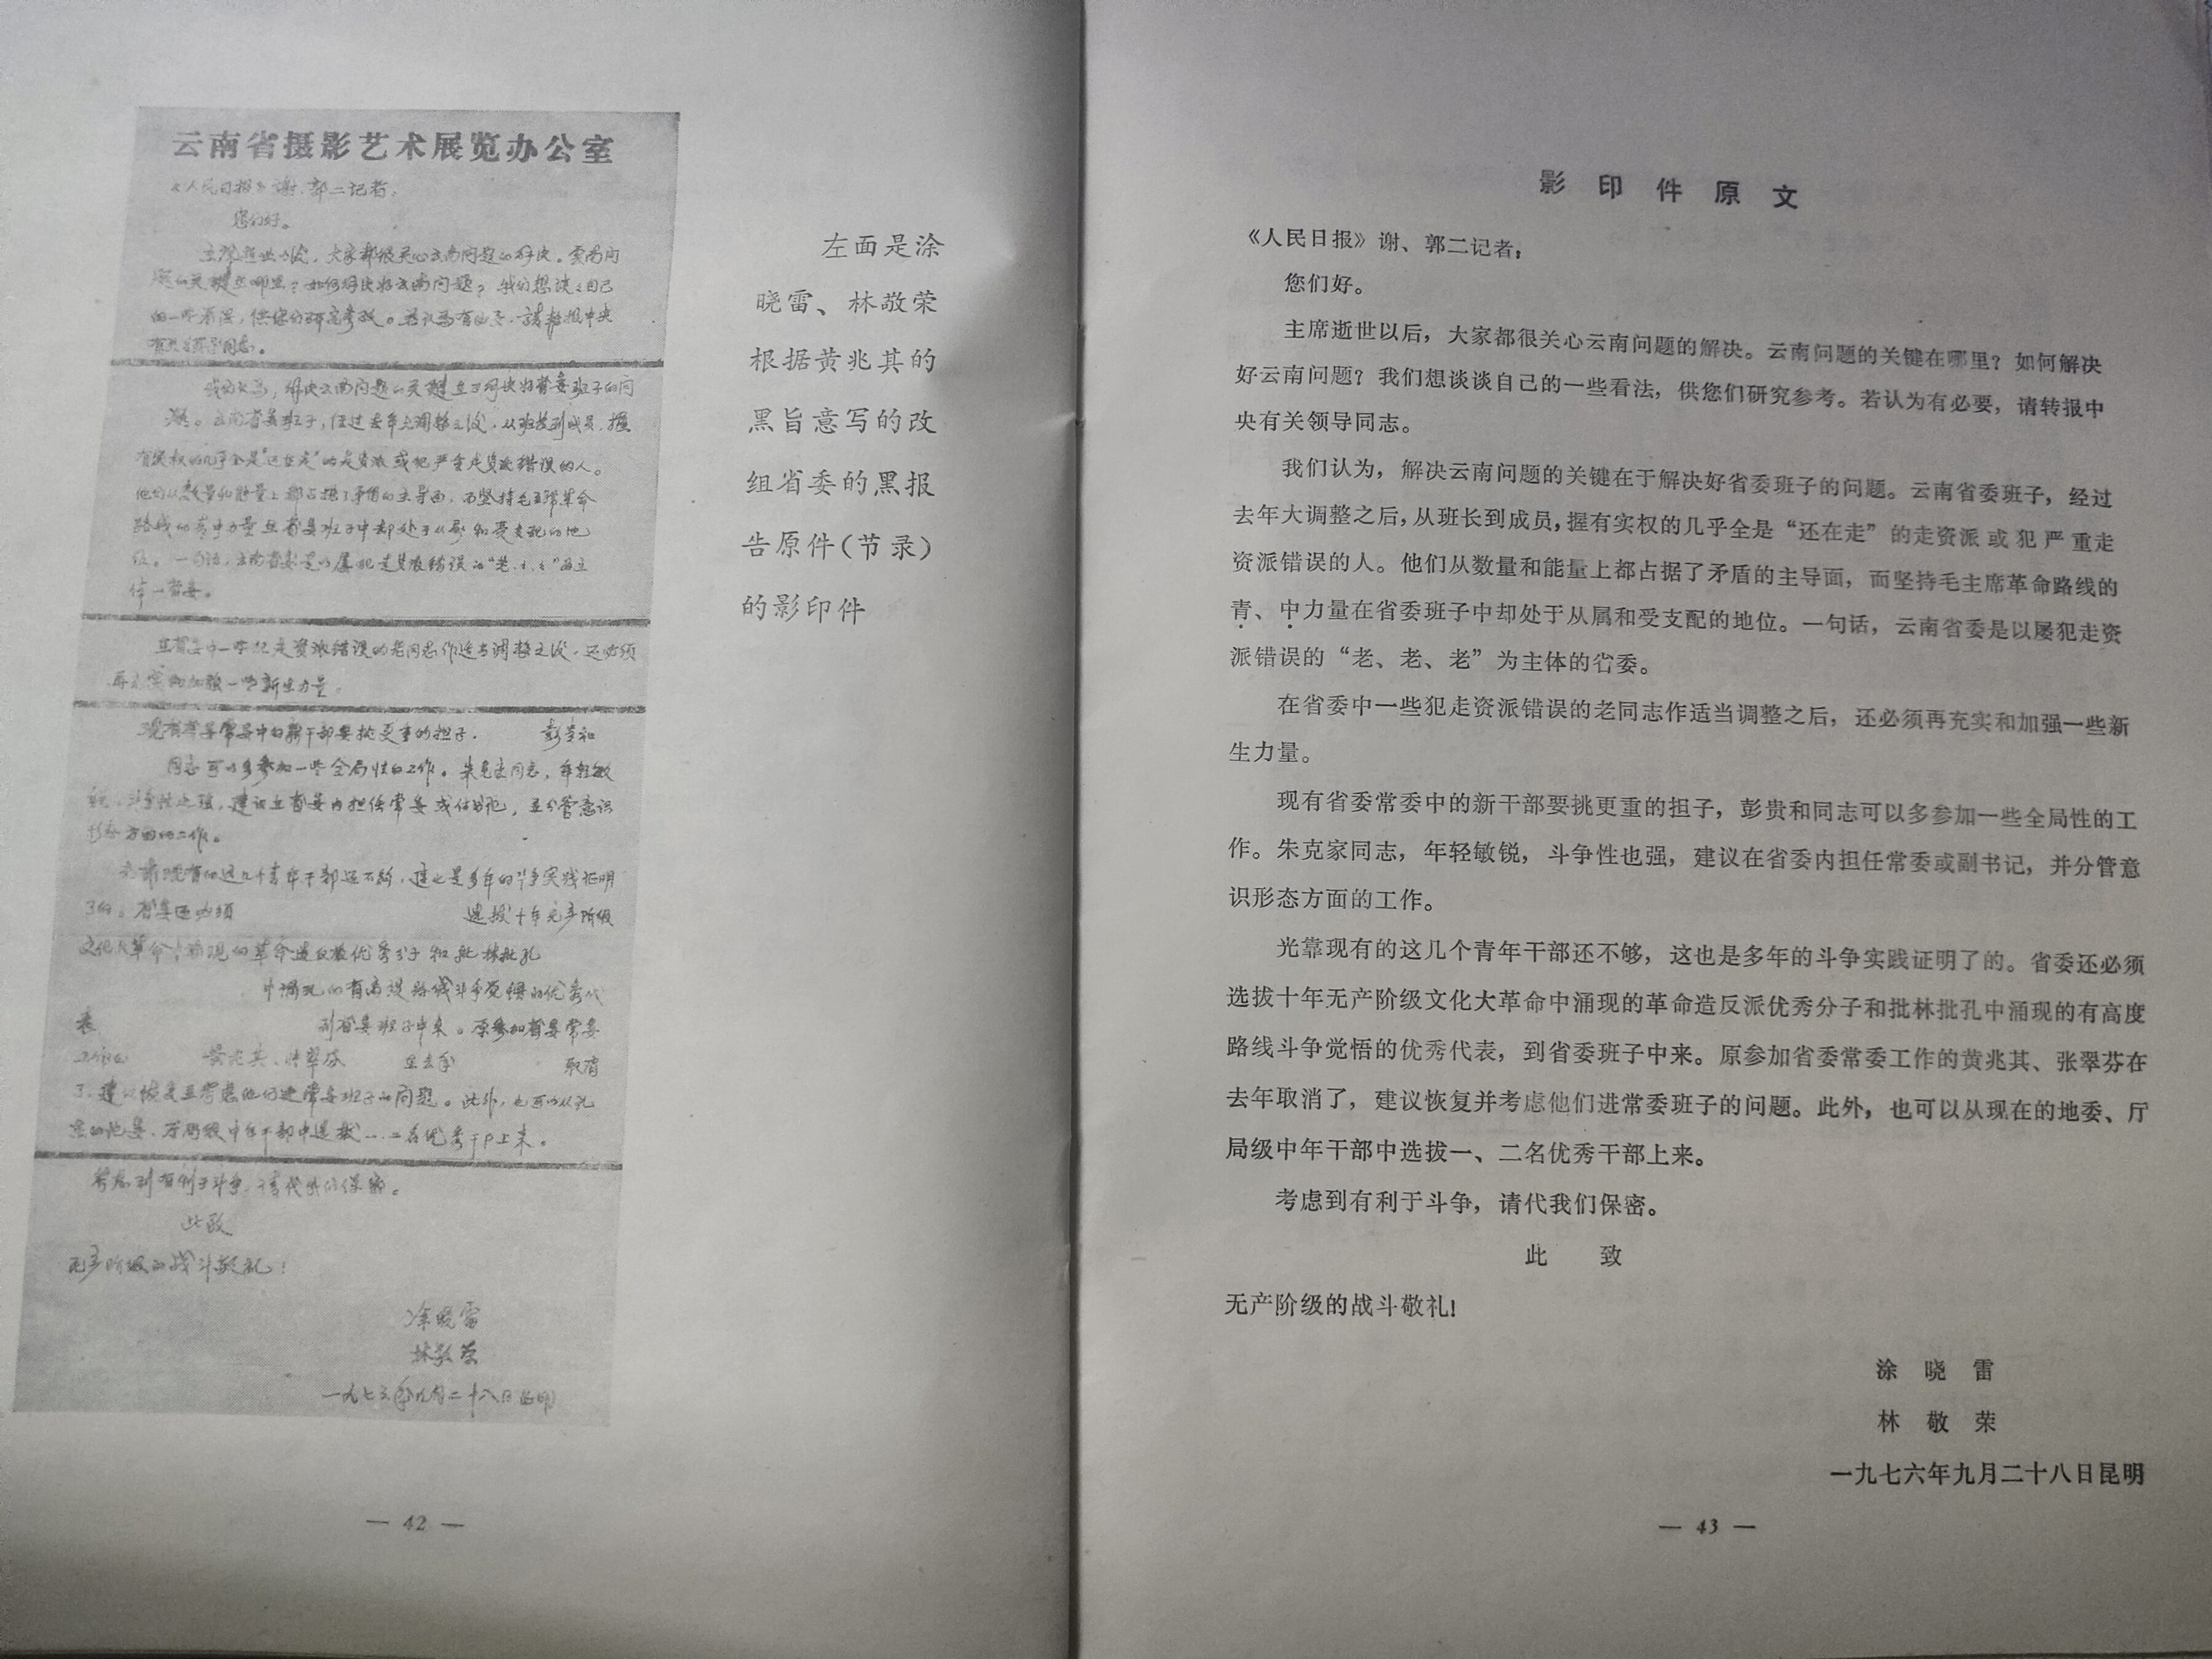 云南省摄影艺术展览办公室
《人民日报》谢、郭二记者:
您们好。
主席逝世以后,大家都很关心云南问题的解决。云南问
题的关键在哪里?如何解决好云南问题?我们想谈谈自己
的一些看法,供您们研究参考。若认为有必要,请转报中央
有关领导同志。
我们认为,解决云南问题的关键在于解决好省委班子的问
题。云南省委班子,经过去年大调整之后,从班长到成员,握
有实权的几乎全是“还在走”的走资派或犯严重走资派错误的人。
他们从数量和能量上都占据了矛盾的主导面,而坚持毛主席革命
路线的青中力量在省委班子中却处于从属和受支配的地
位。一句话,云南省委是以屡犯走资派错误的“老、老、老”为主
体的省委。
在省委中一些犯走资派错误的老同志作适当调整之后,还必须
再充实和加强一些新生力量。
现有省委常委中的新干部要挑更重的担子, 彭贵和
同志可以多参加一些全局性的工作。朱克家同志,年轻敏
锐,斗争性也强,建议在省委内担任常委或付书记,并分管意识
形态方面的工作。
光靠现有的这几个青年干部还不够,这也是多年的斗争实践证明
了的。省委还必须 选拔十年无产阶级
文化大革命中涌现的革命造反派优秀分子和批林批孔
中涌现的有高度路线斗争觉悟的优秀代
表 到省委班子中来。原参加省委常委
工作的 黄兆其、张翠芬 在去年 取消
了,建议恢复并考虑他们进常委班子的问题。此外,也可以从现
在的地委、厅局级中年干部中选拔一、二名优秀干部上来。
考虑到有利于斗争,请代我们保密。
此致
无产阶级的战斗敬礼!
涂晓雷
林敬荣
一九七六年九月二十八日昆明
左面是涂
晓雷、林敬荣
根据黄兆其的
黑旨意写的改
组省委的黑报
告原件(节录)
的影印件
— 42 —
影印件原文
《人民日报》谢、郭二记者:
您们好。
主席逝世以后,大家都很关心云南问题的解决。云南问题的关键在哪里?如何解决
好云南问题?我们想谈谈自己的一些看法,供您们研究参考。若认为有必要,请转报中
央有关领导同志。
我们认为,解决云南问题的关键在于解决好省委班子的问题。云南省委班子,经过
去年大调整之后,从班长到成员,握有实权的几乎全是“还在走”的走资派或犯严重走
资派错误的人。他们从数量和能量上都占据了矛盾的主导面,而坚持毛主席革命路线的
青、中力量在省委班子中却处于从属和受支配的地位。一句话,云南省委是以屡犯走资
派错误的“老、老、老”为主体的省委。
在省委中一些犯走资派错误的老同志作适当调整之后,还必须再充实和加强一些新
生力量。
现有省委常委中的新干部要挑更重的担子,彭贵和同志可以多参加一些全局性的工
作。朱克家同志,年轻敏锐,斗争性也强,建议在省委内担任常委或副书记,并分管意
识形态方面的工作。
光靠现有的这几个青年干部还不够,这也是多年的斗争实践证明了的。省委还必须
选拔十年无产阶级文化大革命中涌现的革命造反派优秀分子和批林批孔中涌现的有高度
路线斗争觉悟的优秀代表,到省委班子中来。原参加省委常委工作的黄兆其、张翠芬在
去年取消了,建议恢复并考虑他们进常委班子的问题。此外,也可以从现在的地委、厅
局级中年干部中选拔一、二名优秀干部上来。
考虑到有利于斗争,请代我们保密。
此 致
无产阶级的战斗敬礼!
涂晓雷
林敬荣
一九七六年九月二十八日昆明
— 43 —